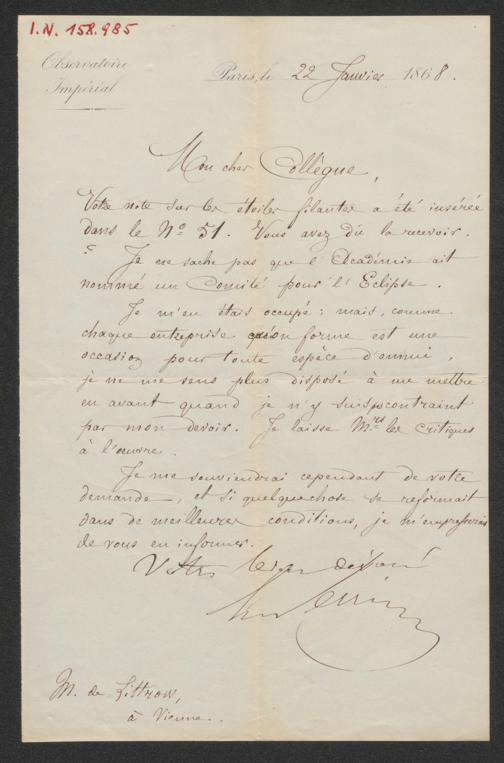 I.N. 158.985
Observatoire
Impérial
Paris, le 22 Janvier 1868.
Mon cher Collègue,
Votre note sur les étoiles filantes a été insérée
dans le No 51. Vous avez dû la recevoir.
Je ne sache pas que l'Académie ait
nommé un Comité pour l'Eclipse.
Je m'en étais occupé : mais, comme
chaque entreprise qu'on forme est une
occasion pour toute espèce d'ennui,
je ne me sens plus disposé à me mettre
en avant quand je n'y suis pas contraint
par mon devoir. Je laisse Mrs les critiques
à l'œuvre.
Je me souviendrai cependant de votre
demande, et si quelquechose se reformait
dans de meilleures conditions, je m'empresserais
de vous en informer.
Votre bien dévoué
M. de Littrow,
à Vienne.